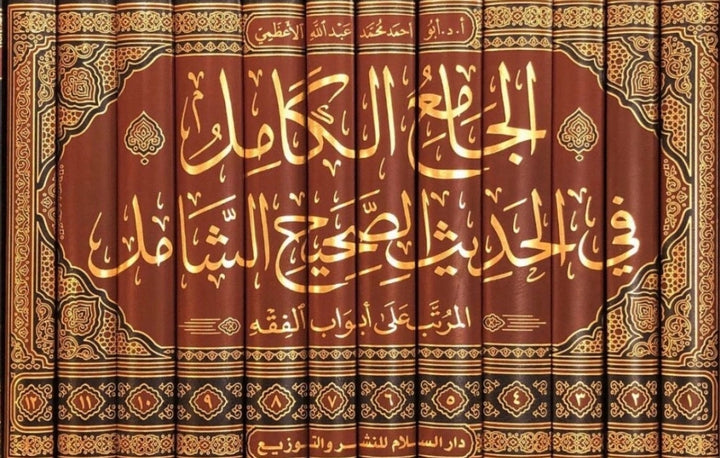 أ.د. أبو أحمد محمد عبد الله الأعظمي
الجَامِعُ الكَامِلُ
في الحَدِيثِ الصَّحِيحِ الشَّامِل
المُرَتَّب عَلَى أبوَاب الفِقْهِ
١٢ ١١ ١٠ ٩ ٨ ٧ ٦ ٥ ٤ ٣ ٢ ١
دار السلام للنشر والتوزيع